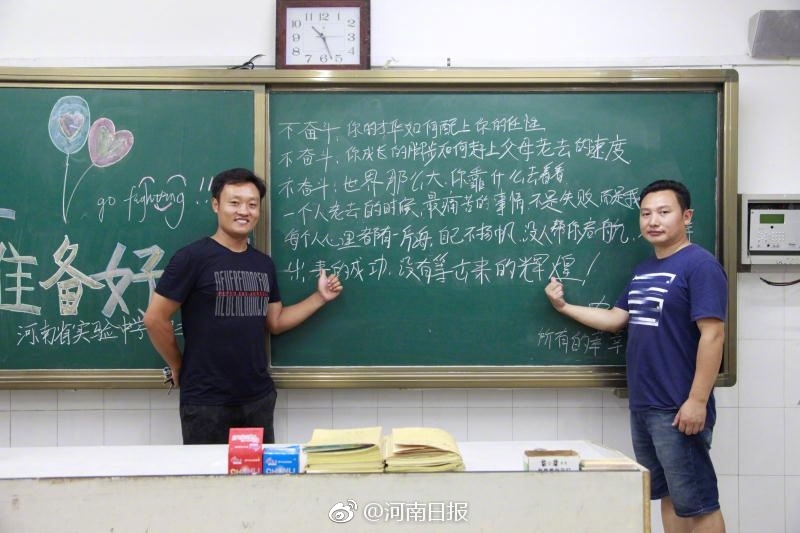 go fighting!!!
准备好
河南省实验中学
不奋斗，你的才华如何配上你的任性
不奋斗，你成长的脚步如何赶上父母老去的速度
不奋斗，世界那么大，你靠什么去看看
一个人老去的时候，最痛苦的事情，不是失败，而是我
每个人心里都有一片海，自己不扬帆，没人帮你启航，
出来的成功，没有等出来的辉煌！
所有的幸
REVEREMOEM
@河南日报